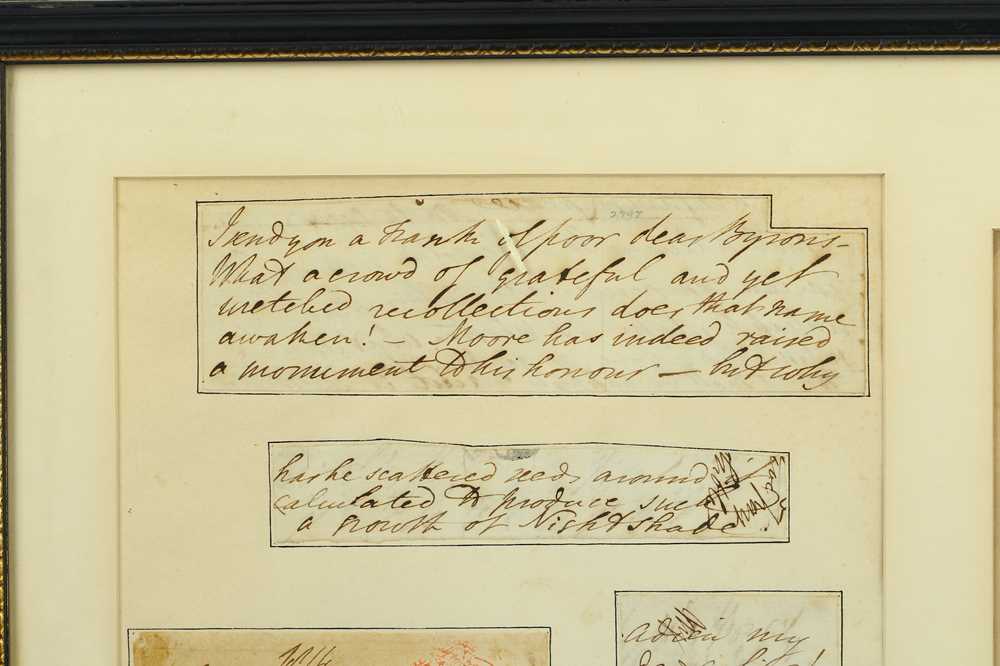 2797
I send you a Frank of poor dear Byrons –
What a crowd of grateful and yet
wretched recollections does that name
awaken! – Moore has indeed raised
a monument to his honour – but why
has he scattered seeds around it
calculated to produce such
a growth of Nightshade.
adieu my